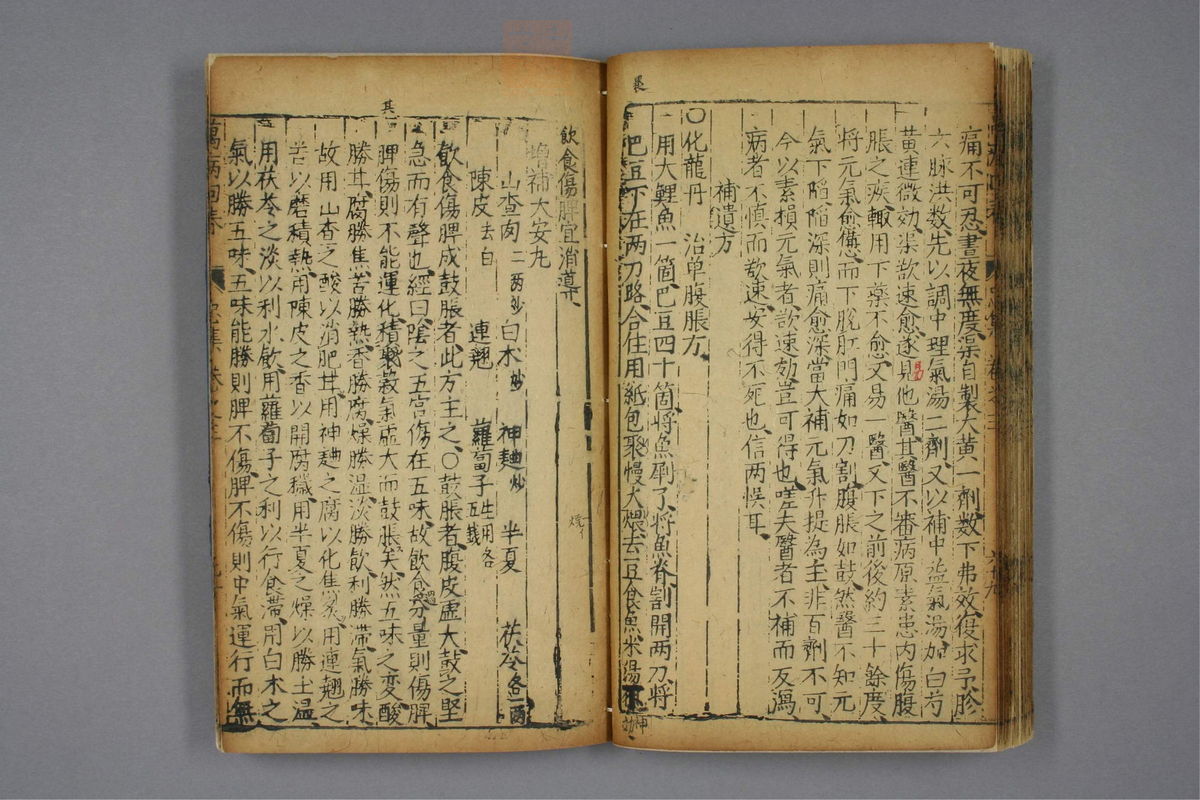 痛不可忍晝夜無度渠自製大黄一劑数下弗效復求予胗
六脉洪数先以調中理氣湯二劑又以補中益氣湯加白芍
黄連微効渠欲速愈遂見他醫其醫不審病原素患内傷腹
易
脹之疾輙用下藥不愈又易一醫又下之前後約三十餘度
將元氣愈憊而下脱肛門痛如刀割腹脹如鼓然醫不知元
氣下陷陷深則痛愈深當大補元氣升提為主非百劑不可
今以素損元氣者欲速効豈可得也嗟夫醫者不補而反瀉
病者不慎而欲速安得不死也信两悞耳
補遺方
〇化龍丹 治单腹脹方
一用大鯉魚一箇巴豆四十箇將魚㓾了將魚脊割開两刀將
巴豆下在两刀路合住用紙包聚慢火煨去豆食魚米湯下
神効
飲食傷脾宜消導
增補大安丸
山查肉二两炒 白术炒 神麯炒 半夏 茯苓各一两
陳皮去白 連翹 蘿蔔子生用各五錢
飲食傷脾成鼓脹者此方主之〇鼓脹者腹皮虛大鼓之堅
急而有聲也經曰陰之五宫傷在五味故飲食過分量則傷脾
脾傷則不能運化積聚穀氣虛大而鼓脹矣然五味之变酸
勝甘腐勝焦苦勝熱香勝腐燥勝湿淡勝飲利勝滯氣勝味
其
故用山查之酸以消肥甘用神麯之腐以化焦炙用連翹之
苦以磨積熱用陳皮之香以開腐穢用半夏之燥以勝土温
用茯苓之淡以利水飲用蘿蔔子之利以行食滯用白术之
氣以勝五味五味能勝則脾不傷脾不傷則中氣運行而無
萬病回春